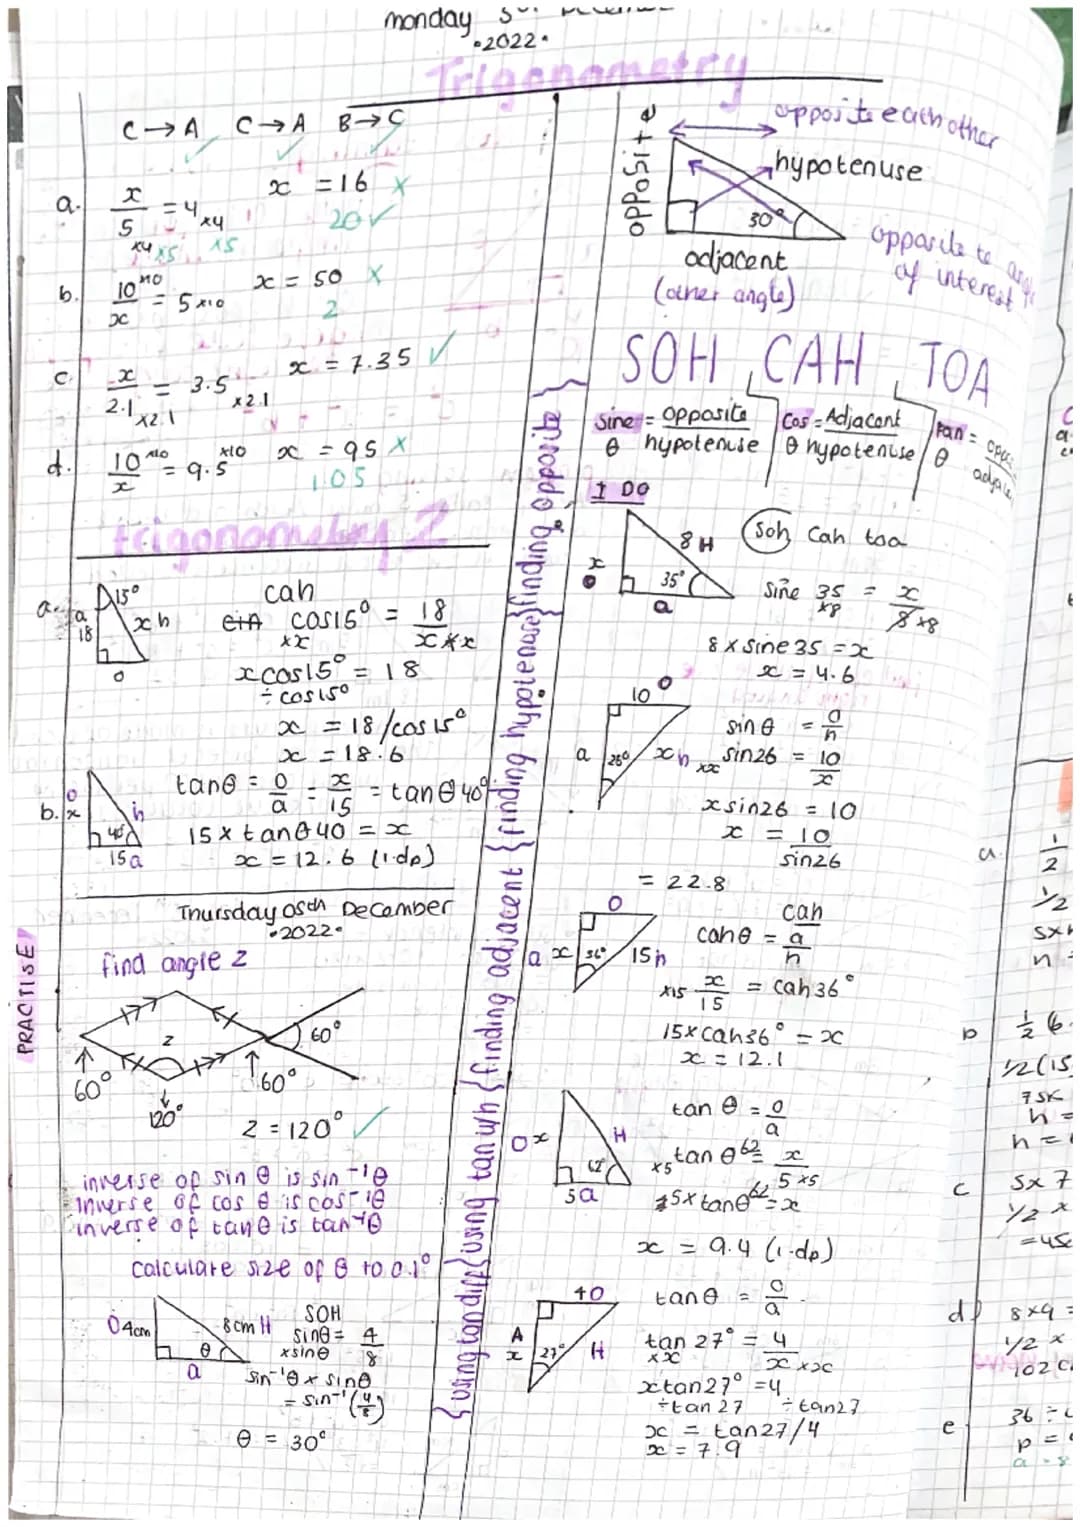 monday
•2022•
Trigonometry
C → A C → A B → C
a. x/5 = 4 ×4 x = 16 ×
×4 ×5 ×5 20 ✓
b. 10/x ×10 = 5 ×10 x = 50 ×
2
c. x/2.1 ×2.1 = 3.5 ×2.1 x = 7.35 ✓
d. 10/x ×10 = 9.5 ×10 x = 95 ×
1.05
trigonometry 2
a. a 18 15° x h o
cah
cos15° = 18/x
×x ×x
x cos15° = 18
÷ cos15°
x = 18/cos15°
x = 18.6
b. o x h 40° 15 a
tanθ = o/a = x/15 = tanθ40°
15 x tanθ40 = x
x = 12.6 (1.dp)
Thursday 08th December
•2022•
PRACTISE
find angle z
z 60°
60° 60°
120°
z = 120° ✓
inverse of sin θ is sin⁻¹θ
inverse of cos θ is cos⁻¹θ
inverse of tanθ is tan⁻¹θ
calculate size of θ to 0.1°
O 4cm 8cm H θ a
SOH
sinθ = 4/8
×sinθ
sin⁻¹θ x sinθ
= sin⁻¹(4/8)
θ = 30°
{using tan diff} {using tan wh {finding adjacent {finding hypotenuse} finding opposite}
opposite each other
opposite
hypotenuse
30°
adjacent
(other angle)
opposite to angle
of interest
SOH CAH TOA
Sine θ = opposite/hypotenuse
Cos θ = Adjacent/hypotenuse
tan θ =
I DO
x O 8 H 35° a
Soh Cah toa
sine 35 = x/8
×8 ×8
8 x sine 35 = x
x = 4.6
10 o a 26° x h
sinθ = o/h
×x sin26 = 10/x
x sin26 = 10
x = 10/sin26
= 22.8
O a x 36° 15h
cah
cahθ = a/h
×15 x/15 = cah36°
15×cah36° = x
x = 12.1
O x H 62° 5a
tan θ = o/a
×5 tan θ62 = x/5 ×5
5×tanθ62 = x
x = 9.4 (1.dp)
4 O A x 27° H
tanθ = o/a
tan 27° = 4/x
×x ×x
x tan27° = 4
÷tan 27 ÷tan27
x = tan27/4
x = 7.9
a. 1/2
1/2
n =
b
1/2 (15
75k
h =
h =
c 5x 7
1/2 x
d 8x9 =
1/2 x
e 36 ÷
p =